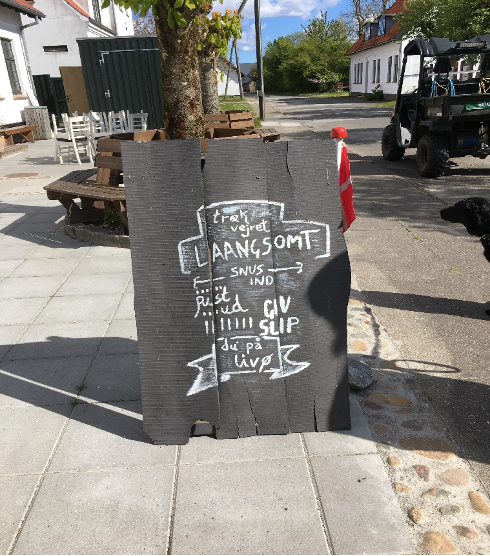 træk
vejret
LAANGSOMT
SNUS
IND
pust
uud
GIV
SLIP
du på
livø